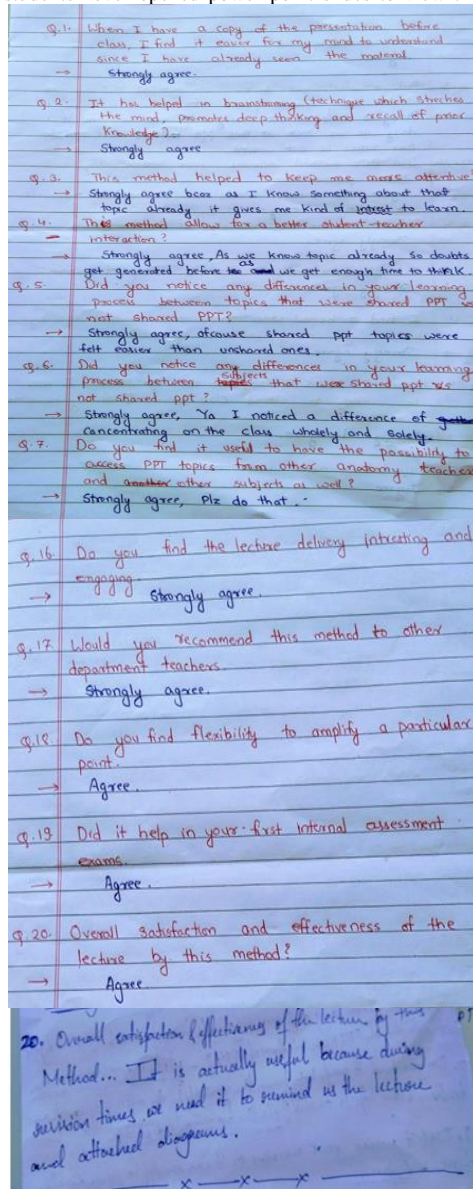 Q.1. When I have a copy of the presentation before
class, I find it easier for my mind to understand
since I have already seen the material.
→ Strongly agree.
Q.2. It has helped in brainstroming (technique which streches
the mind, promotes deep thinking and recall of prior
knowledge).
→ Strongly agree
Q.3. This method helped to keep me more attentive
→ Strongly agree bcoz as I know something about that
topic already it gives me kind of intrest to learn.
Q.4. This method allow for a better student-teacher
interaction?
→ Strongly agree, As we know topic already so doubts
get generated before as we get enough time to think.
Q.5. Did you notice any differences in your learning
process between topics that were shared PPT
not shared PPT?
→ Strongly agree, ofcouse shared ppt topics were
felt easier than unshared ones.
Q.6. Did you notice any differences in your learning
process between subjects that were shared ppt v/s
not shared ppt?
→ Strongly agree, Ya I noticed a difference of
concentrating on the class wholely and solely.
Q.7. Do you find it useful to have the possibility to
access PPT topics from other anatomy teacher
and other subjects as well?
→ Strongly agree, Plz do that.
Q.16. Do you find the lecture delivery intresting and
engaging.
→ Strongly agree.
Q.17. Would you recommend this method to other
department teachers.
→ Strongly agree.
Q.18. Do you find flexibility to amplify a particular
point.
→ Agree.
Q.19. Did it help in your first internal assessment
exams.
→ Agree.
Q.20. Overall satisfaction and effectiveness of the
lecture by this method?
→ Agree.
20. Overall satisfaction & effectiveness of the lecture by this
Method... It is actually useful because during
revision times we need it to remind us the lecture
and attached diagrams.
x — x — x